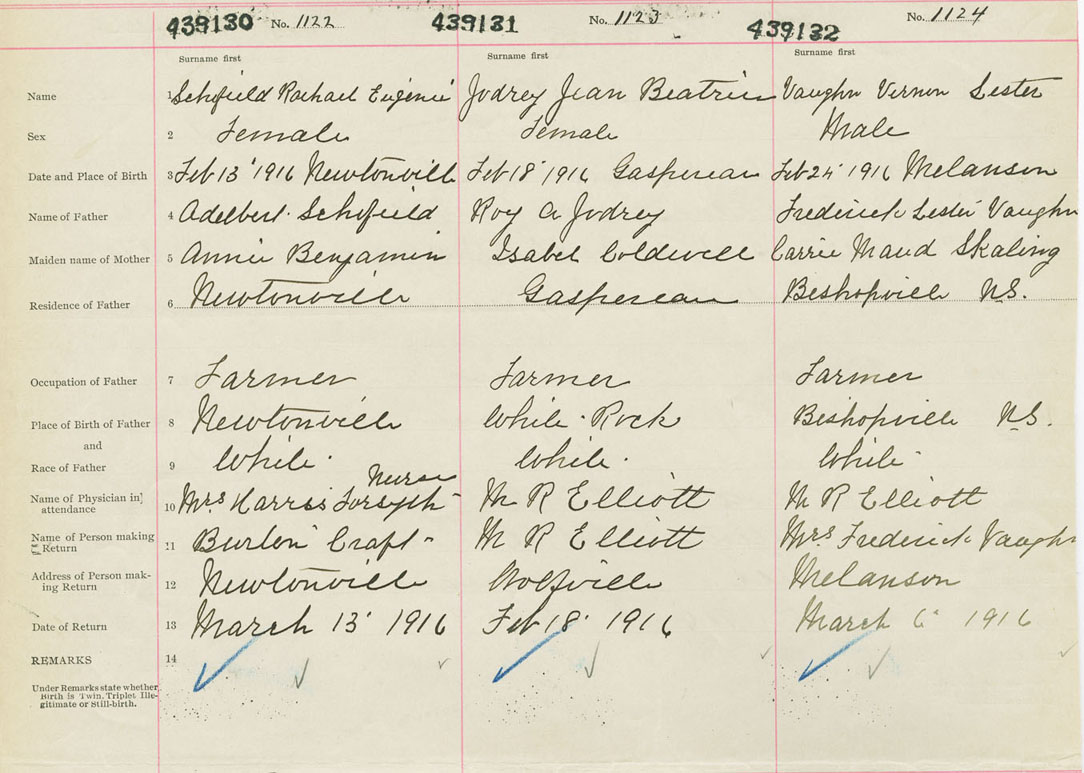 439130 No. 1122 439131 No. 1123 439132 No. 1124
Surname first Surname first Surname first
Name 1 Schofield Rachael Eugenie Jodrey Jean Beatrice Vaughn Vernon Lester
Sex 2 Female Female Male
Date and Place of Birth 3 Feb 13 1916 Newtonville Feb 18 1916 Gaspereau Feb 24 1916 Melanson
Name of Father 4 Adelbert Schofield Roy A Jodrey Frederick Lester Vaughn
Maiden name of Mother 5 Annie Benjamin Isabel Coldwell Carrie Maud Skaling
Residence of Father 6 Newtonville Gaspereau Beshopville N.S.
Occupation of Father 7 Farmer Farmer Farmer
Place of Birth of Father 8 Newtonville White Rock Beshopville N.S.
and
Race of Father 9 White White White
Nurse
Name of Physician in attendance 10 Mrs Harris Forsyth M R Elliott M R Elliott
Name of Person making Return 11 Burton Craft M R Elliott Mrs Frederick Vaughn
Address of Person making Return 12 Newtonville Wolfville Melanson
Date of Return 13 March 13 1916 Feb 18 1916 March 6 1916
REMARKS 14
Under Remarks state whether
Birth is Twin, Triplet Ille-
gitimate or Still-birth.